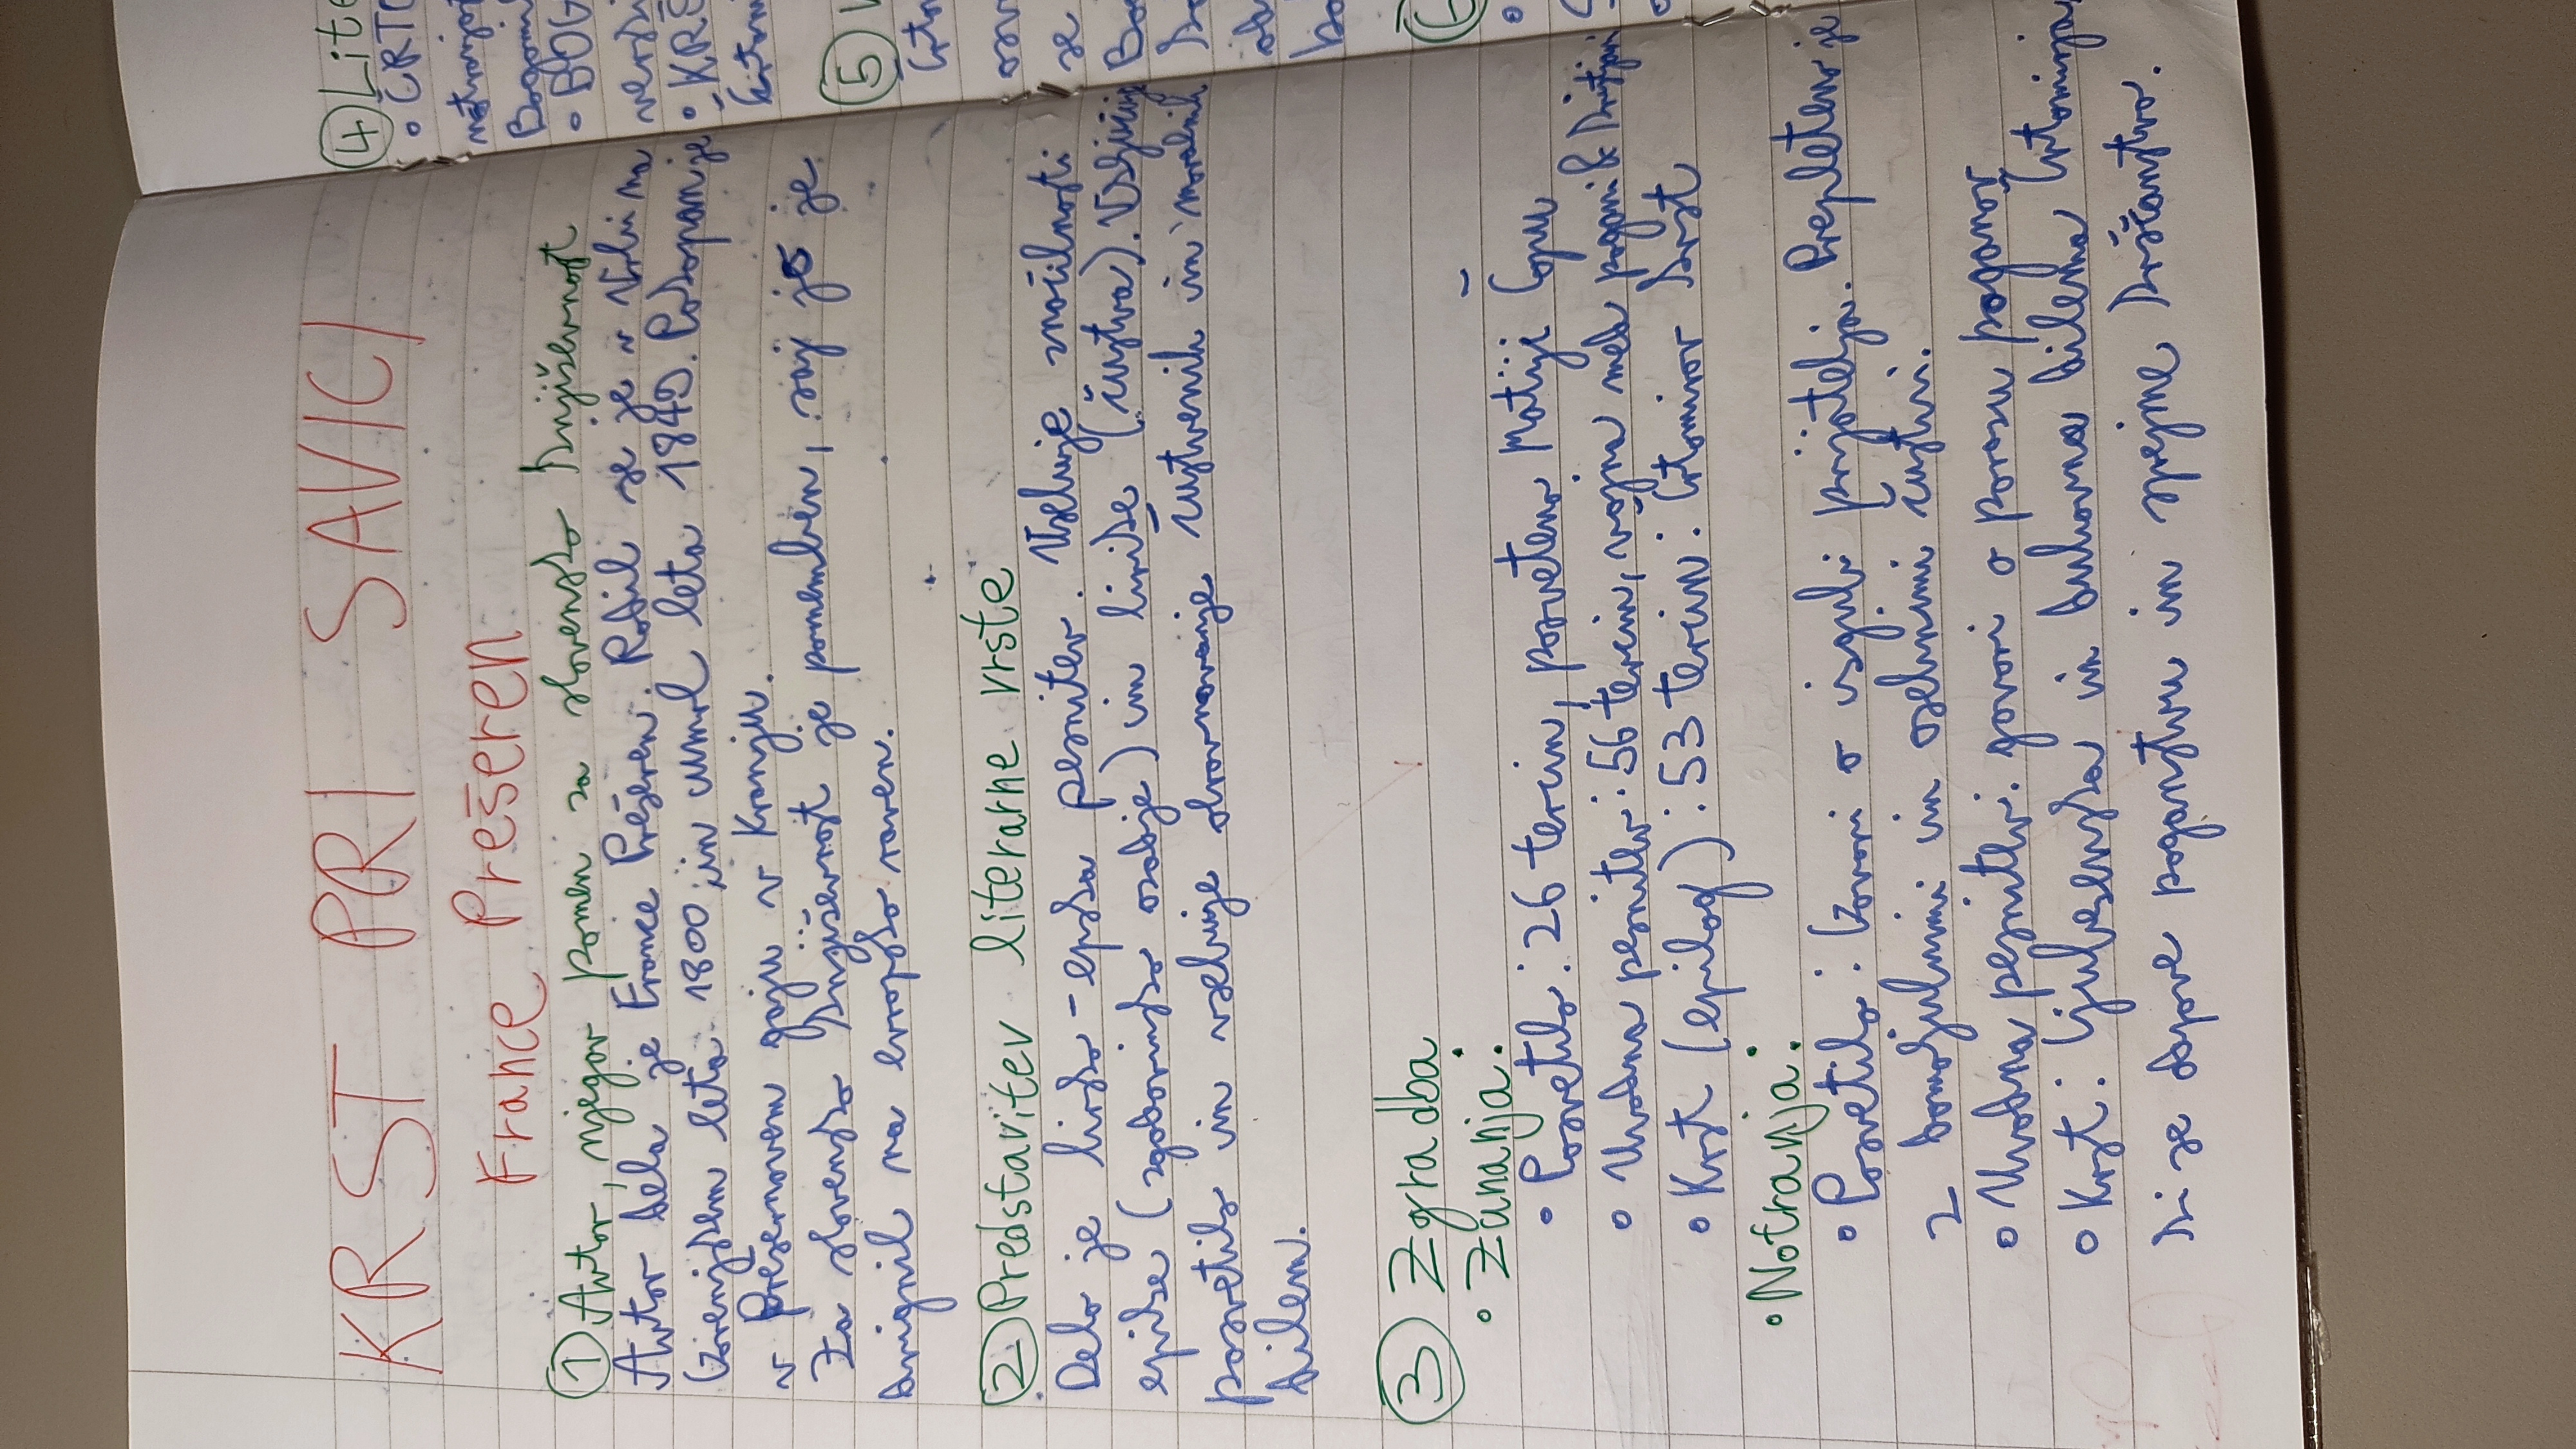 KRST PRI SAVICI
France Prešeren
① Avtor, njegov pomen za slovensko književnost
Avtor dela je France Prešeren. Rodil se je v Vrbi na
Gorenjskem leta 1800 in umrl leta 1849. Pokopan je
v Prešernovem gaju v Kranju.
Za slovensko književnost je pomemben, saj jo je
dvignil na evropsko raven.
② Predstavitev literarne vrste
Delo je lirsko-epska pesnitev. Vsebuje značilnosti
epike (zgodovinsko ozadje) in lirike (čustva). Vključuje
posvetilo in vsebuje obravnavanje čustvenih in moralnih
dilem.
③ Zgradba
• Zunanja:
• Posvetilo: 26 tercin, posveteno Matiji Čopu
• Uvodna pesnitev: 56 tercin, vojna med pogani & kristjani
• Krst (epilog): 53 tercin: Črtomirov krst
• Notranja:
• Posvetilo: Govori o izgubi prijatelja. Prepleteno je
z domoljubnimi in osebnimi čustvi.
• Uvodna pesnitev: govori o porazu poganov
• Krst: ljubezenska in duhovna dilema Črtomirja,
ki se odpove poganstvu in sprejme krščanstvo.
④ Lite
• ČRTO
notranjos
Bogomil
• BOG
versk
• KRŠ
Črtomi
⑤ V
Črto
osv
se
Bo
ko
ob
bo